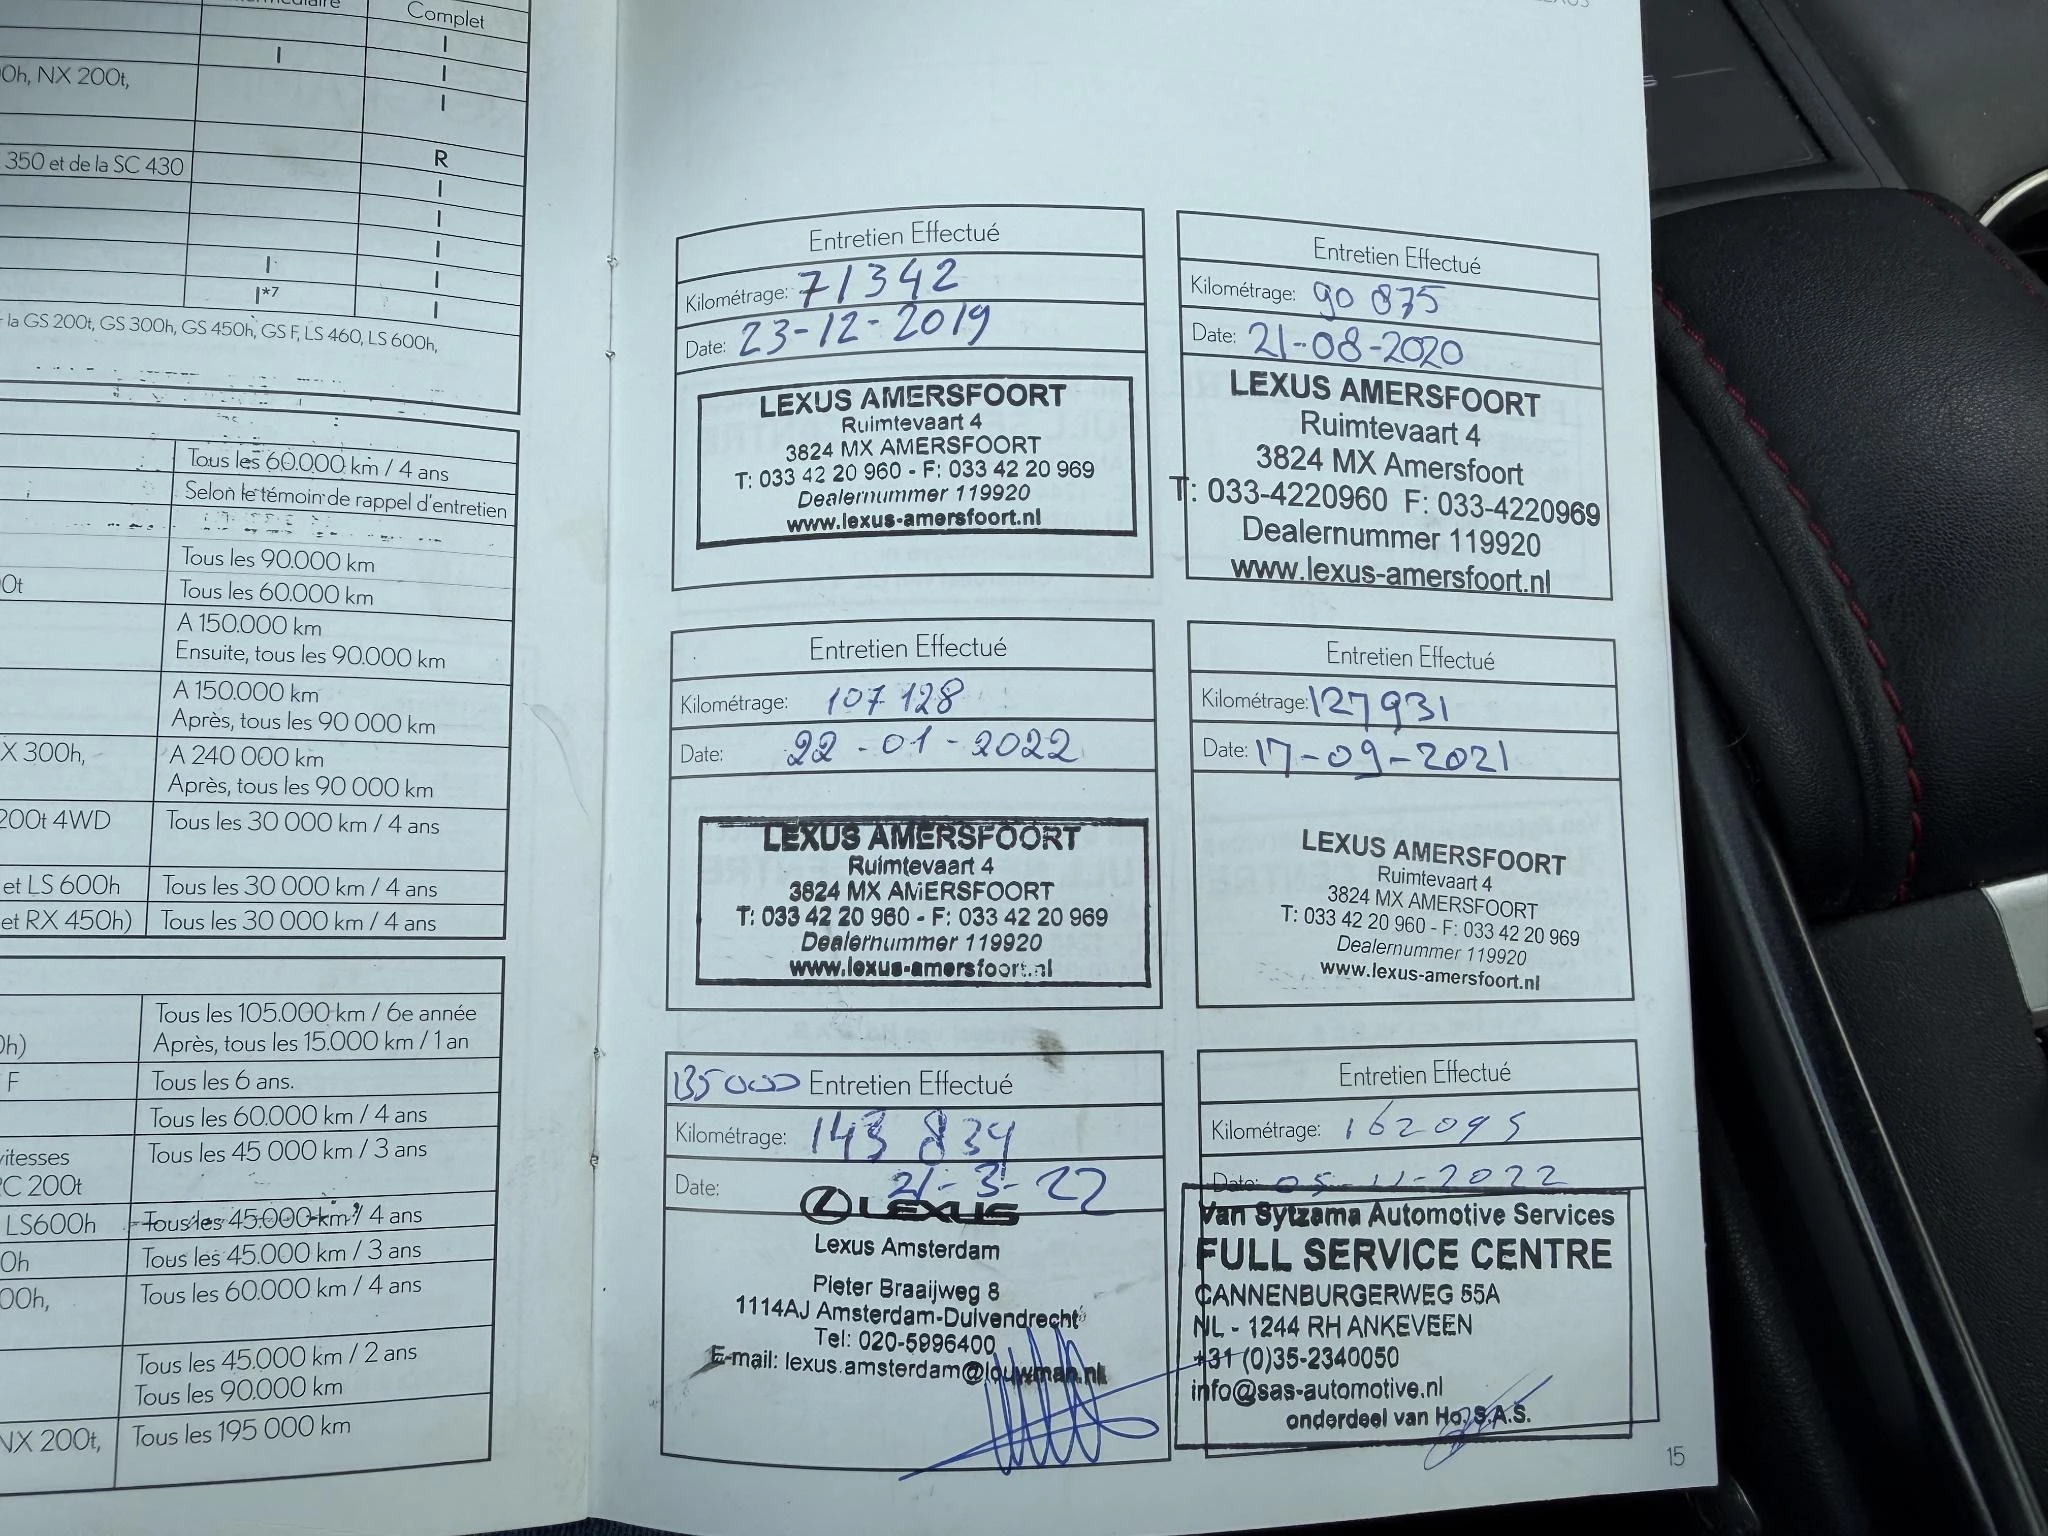 Complet
I
I
I
0h, NX 200t,
I
R
350 et de la SC 430
I
I
I
I
I
I*7
I
la GS 200t, GS 300h, GS 450h, GS F, LS 460, LS 600h,
Tous les 60.000 km / 4 ans
Selon le témoin de rappel d'entretien
Tous les 90.000 km
0t
Tous les 60.000 km
A 150.000 km
Ensuite, tous les 90.000 km
A 150.000 km
Après, tous les 90 000 km
X 300h,
A 240 000 km
Après, tous les 90 000 km
200t 4WD
Tous les 30 000 km / 4 ans
et LS 600h
Tous les 30 000 km / 4 ans
et RX 450h)
Tous les 30 000 km / 4 ans
Tous les 105.000 km / 6e année
0h)
Après, tous les 15.000 km / 1 an
F
Tous les 6 ans.
Tous les 60.000 km / 4 ans
vitesses
Tous les 45 000 km / 3 ans
RC 200t
LS600h
Tous les 45.000 km / 4 ans
0h
Tous les 45.000 km / 3 ans
00h,
Tous les 60.000 km / 4 ans
Tous les 45.000 km / 2 ans
Tous les 90.000 km
NX 200t,
Tous les 195 000 km
Entretien Effectué
Kilométrage: 71342
Date: 23-12-2019
LEXUS AMERSFOORT
Ruimtevaart 4
3824 MX AMERSFOORT
T: 033 42 20 960 - F: 033 42 20 969
Dealernummer 119920
www.lexus-amersfoort.nl
Entretien Effectué
Kilométrage: 90 875
Date: 21-08-2020
LEXUS AMERSFOORT
Ruimtevaart 4
3824 MX Amersfoort
T: 033-4220960 F: 033-4220969
Dealernummer 119920
www.lexus-amersfoort.nl
Entretien Effectué
Kilométrage: 107 128
Date: 22-01-2022
LEXUS AMERSFOORT
Ruimtevaart 4
3824 MX AMERSFOORT
T: 033 42 20 960 - F: 033 42 20 969
Dealernummer 119920
www.lexus-amersfoort.nl
Entretien Effectué
Kilométrage: 127931
Date: 17-09-2021
LEXUS AMERSFOORT
Ruimtevaart 4
3824 MX AMERSFOORT
T: 033 42 20 960 - F: 033 42 20 969
Dealernummer 119920
www.lexus-amersfoort.nl
135000 Entretien Effectué
Kilométrage: 143 834
Date: 21-3-22
LEXUS
Lexus Amsterdam
Pieter Braaijweg 8
1114AJ Amsterdam-Duivendrecht
Tel: 020-5996400
E-mail: lexus.amsterdam@louwman.nl
Entretien Effectué
Kilométrage: 162095
Date: 05-11-2022
Van Sytzama Automotive Services
FULL SERVICE CENTRE
CANNENBURGERWEG 55A
NL - 1244 RH ANKEVEEN
+31 (0)35-2340050
info@sas-automotive.nl
onderdeel van Ho. S.A.S.
15